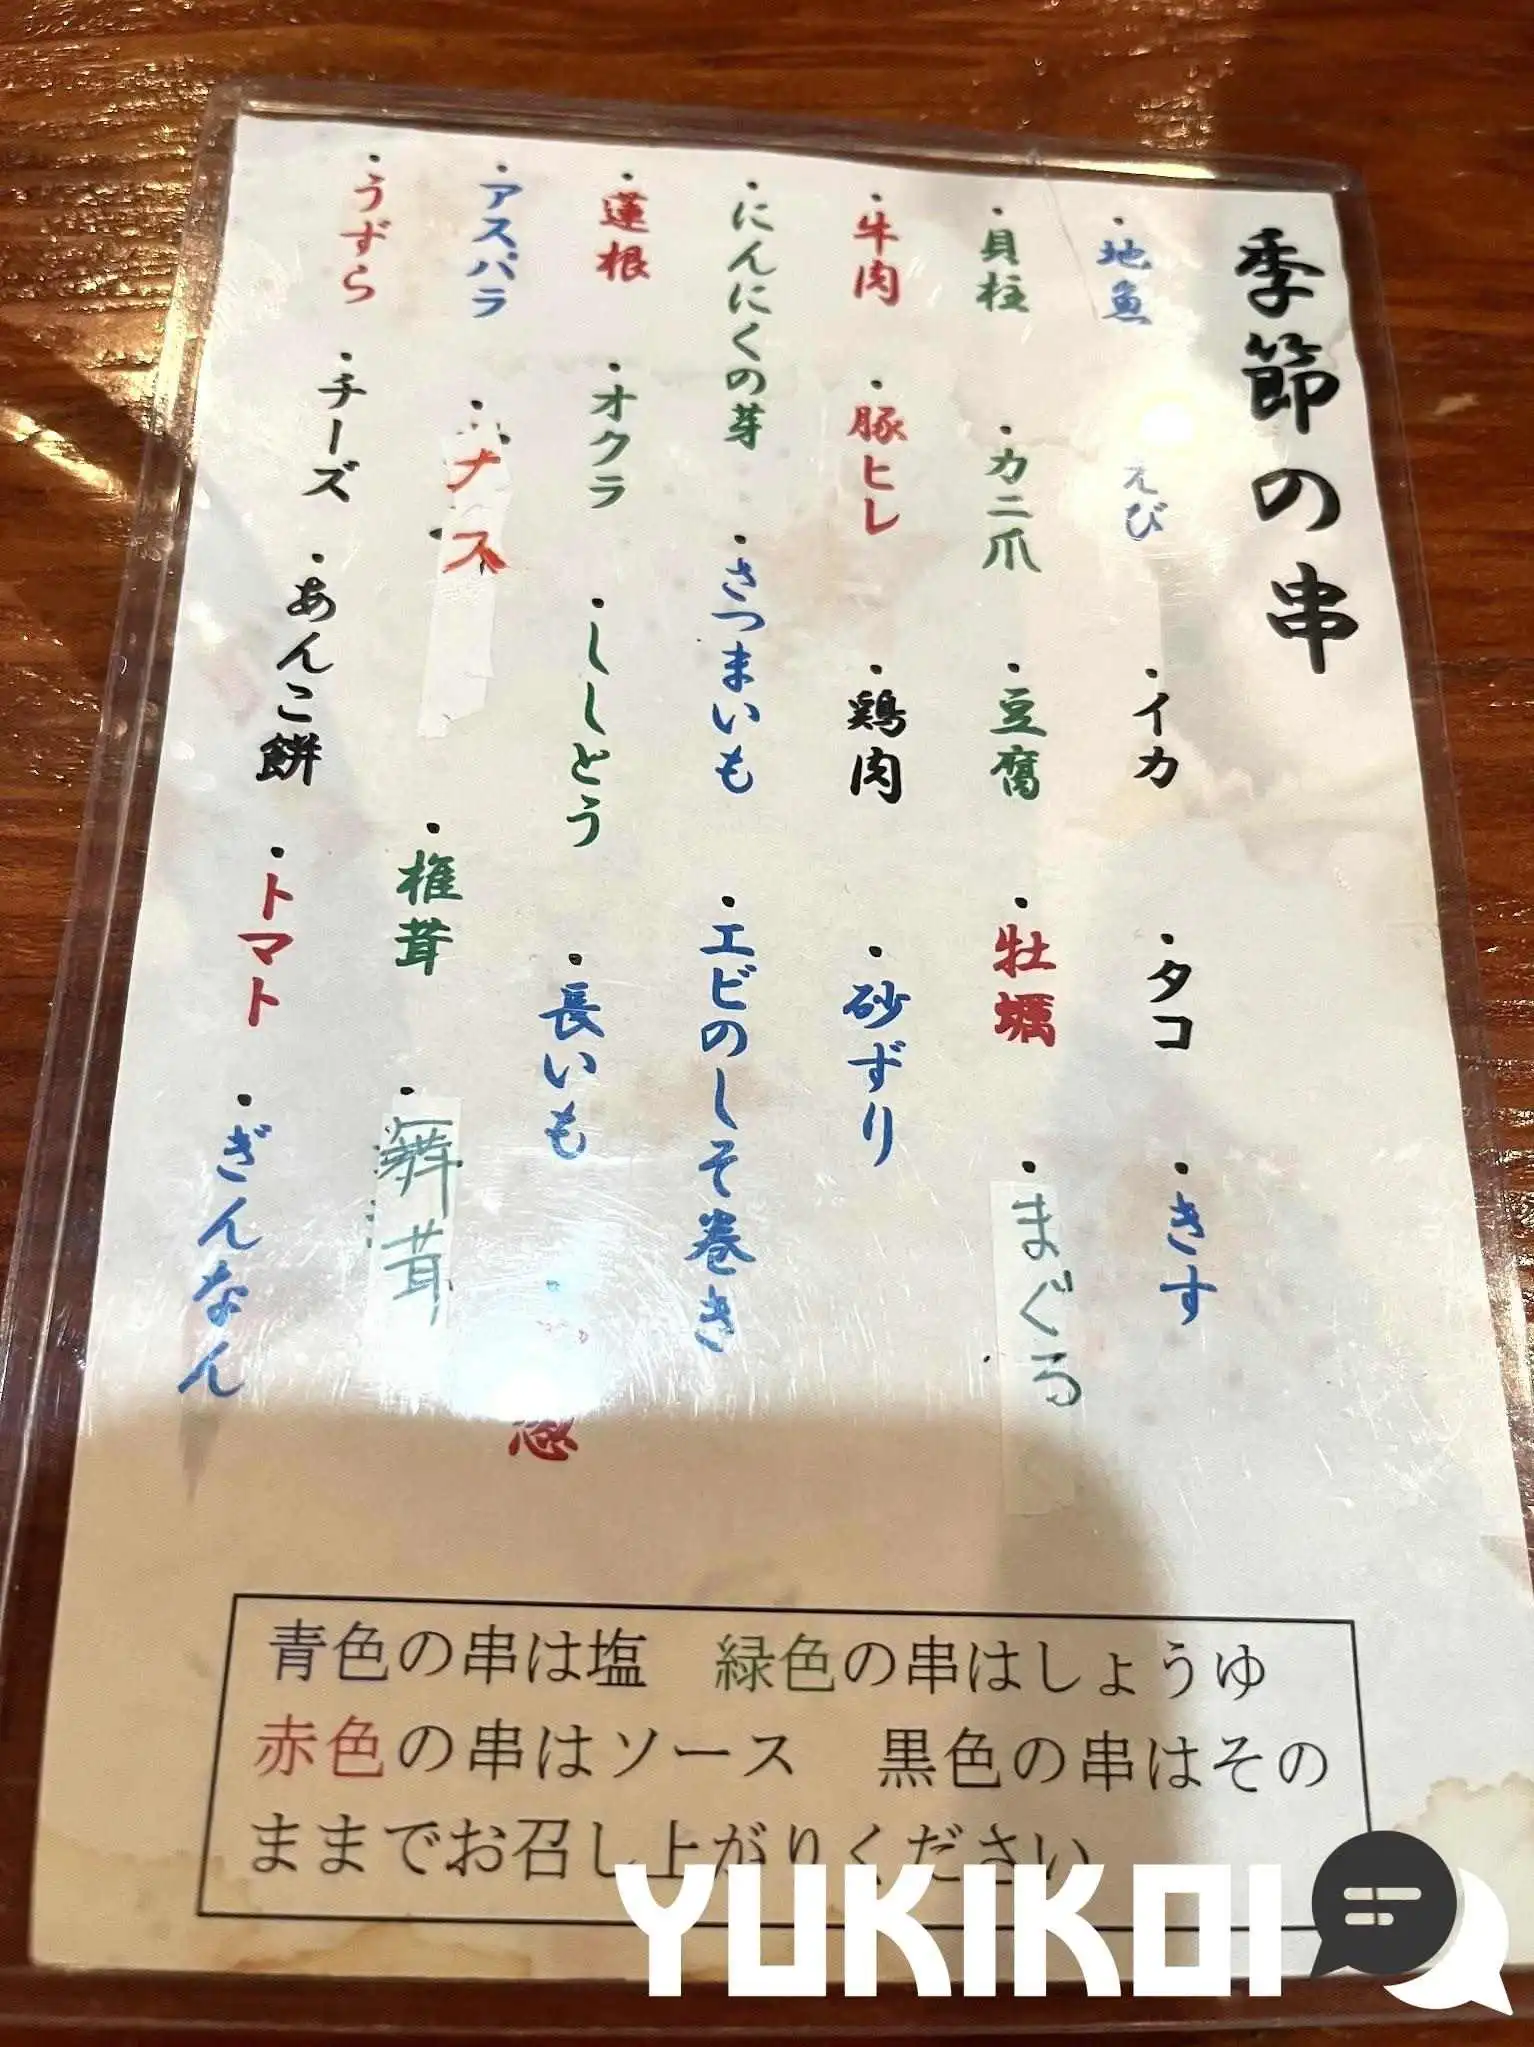 季節の串
・地魚
えび
・イカ
・タコ
・きす
・貝柱
・カニ爪
・豆腐
・牡蠣
・まぐろ
・牛肉
・豚ヒレ
・鶏肉
・砂ずり
・にんにくの芽
・さつまいも
・エビのしそ巻き
・蓮根
・オクラ
・ししとう
・長いも
・アスパラ
・ナス
・椎茸
・舞茸
・うずら
・チーズ
・あんこ餅
・トマト
・ぎんなん
青色の串は塩　緑色の串はしょうゆ
赤色の串はソース　黒色の串はその
ままでお召し上がりください
YUKIKOI